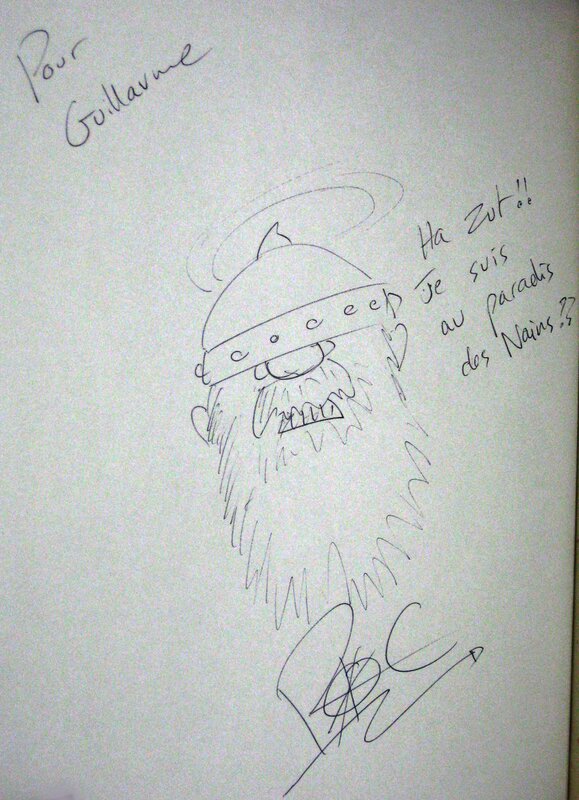 Pour
Guillaume
Ha Zut!!
Je suis
au paradis
des Nains??